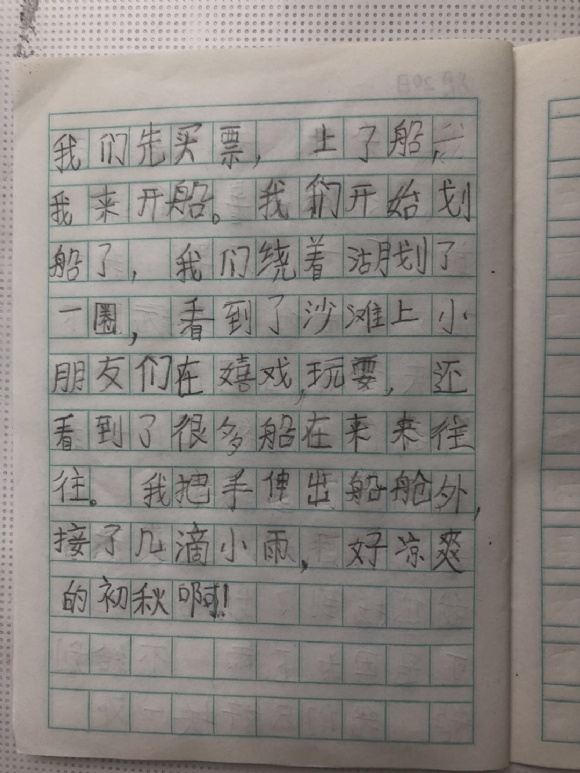 我们先买票，上了船，
我来开船。我们开始划
船了，我们绕着湖划了
一圈，看到了沙滩上小
朋友们在嬉戏，玩耍，还
看到了很多船在来来往
往。我把手伸出船舱外，
接了几滴小雨，好凉爽
的初秋啊！